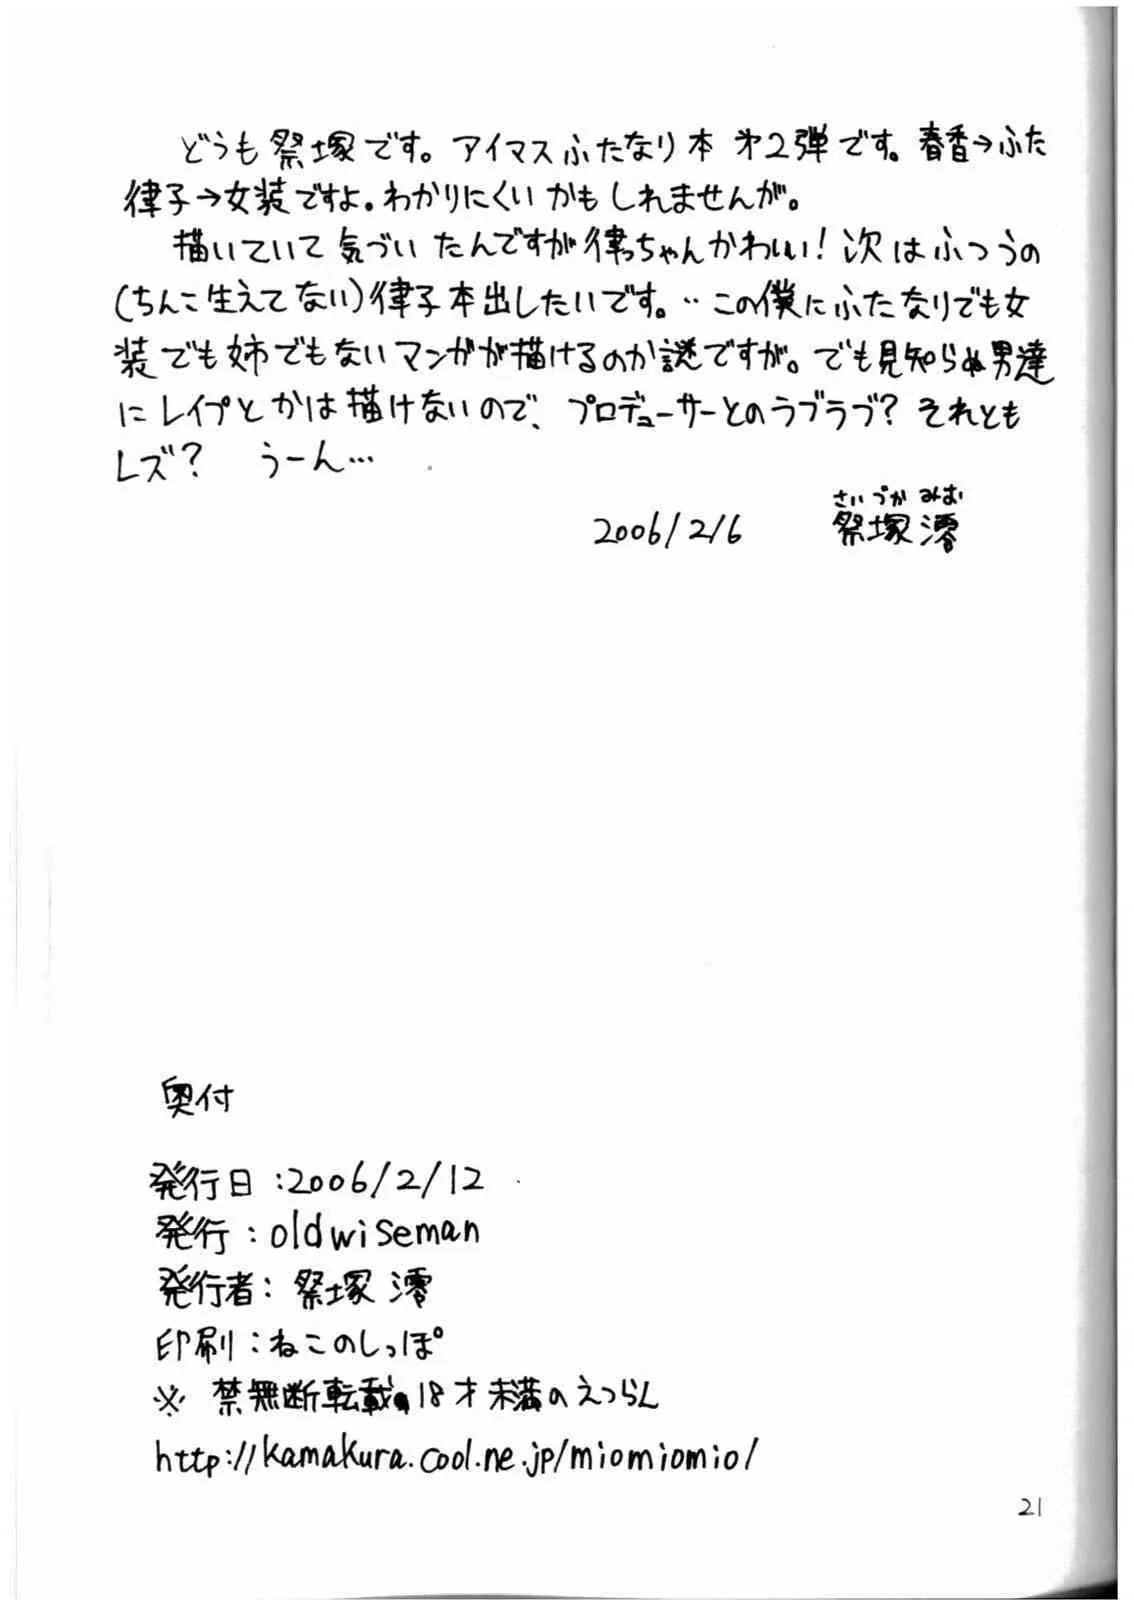 どうも祭塚です。アイマスふたなり本 第2弾です。春香→ふた
律子→女装ですよ。わかりにくいかもしれませんが。
描いていて気づいたんですが律っちゃんかわいい!次はふつうの
(ちんこ生えてない)律子本出したいです。‥この僕にふたなりでも女
装でも姉でもないマンガが描けるのか謎ですが。でも見知らぬ男達
にレイプとかは描けないので、プロデューサーとのラブラブ?それとも
レズ? うーん…
さいづか みお
2006/2/6 祭塚 澪
奥付
発行日:2006/2/12
発行:oldwiseman
発行者:祭塚 澪
印刷:ねこのしっぽ
※ 禁無断転載、18才未満のえつらん
http://kamakura.cool.ne.jp/miomiomio/
21